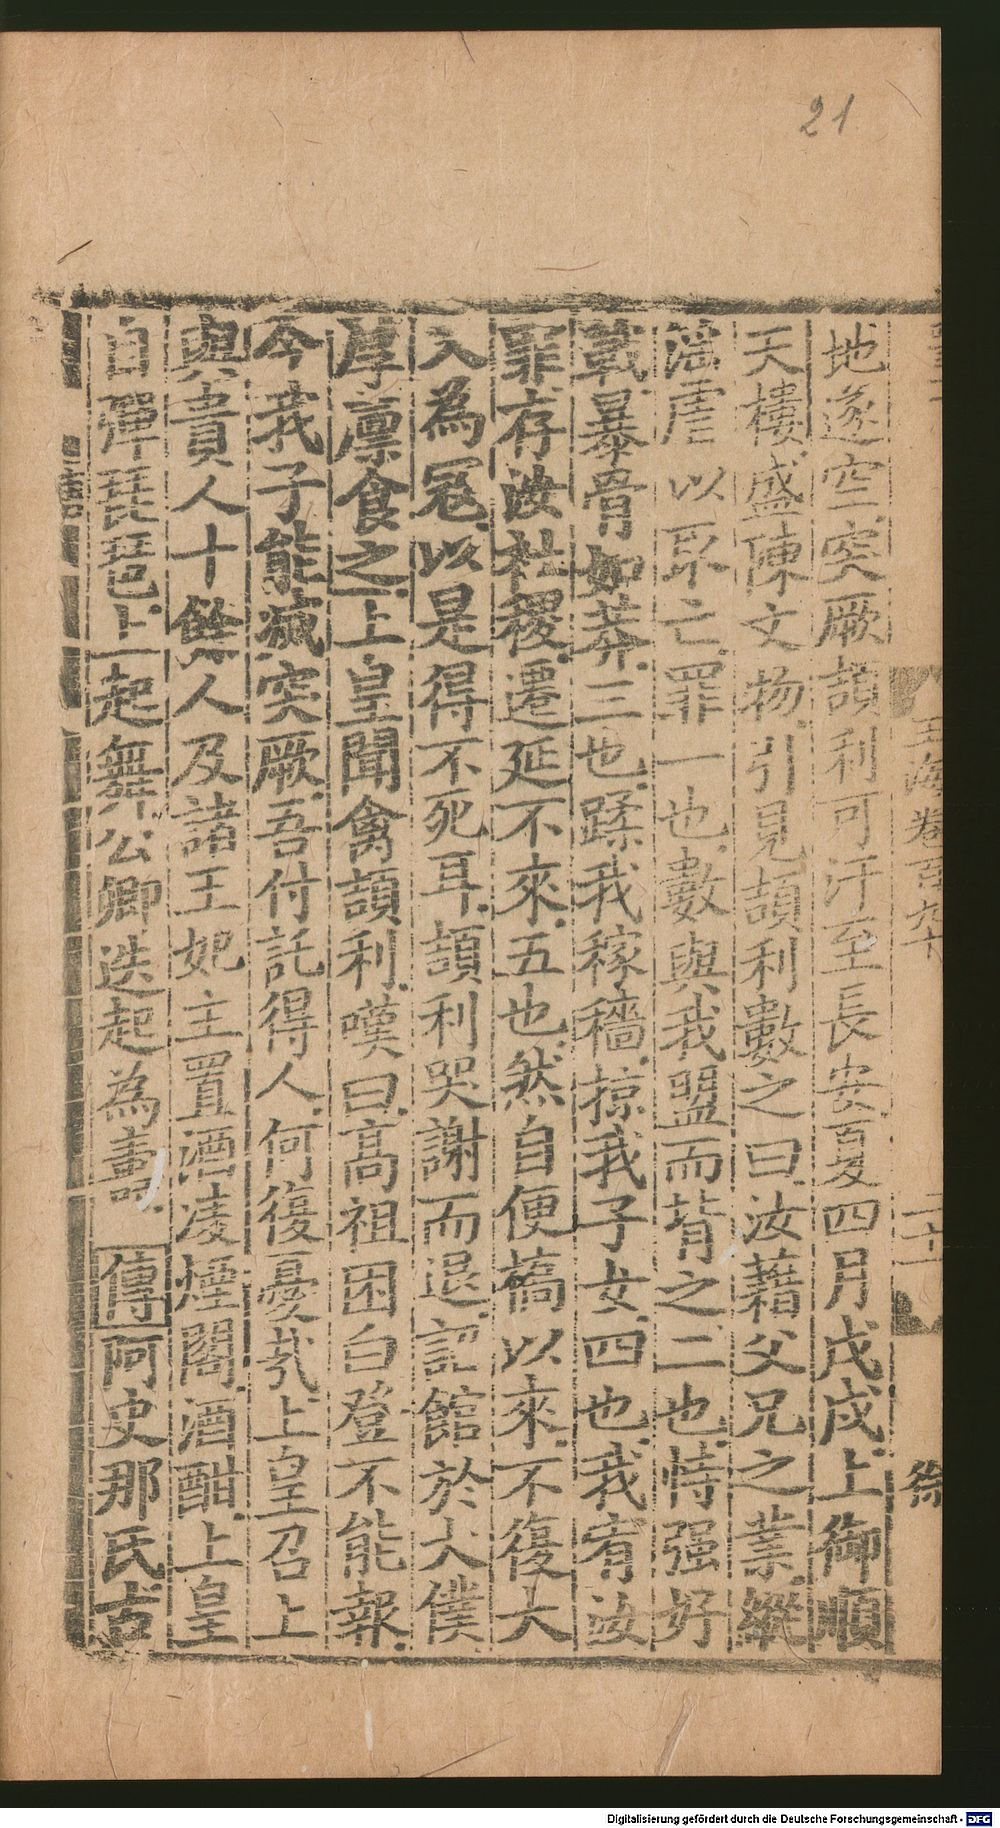 21
地遂空突厥頡利可汗至長安夏四月戊戌上御順
天樓盛陳文物引見頡利數之曰汝藉父兄之業縱
滛虐以取亡罪一也數與我盟而背之二也恃强好
戰暴骨如莽三也蹂我稼穡掠我子女四也我宥汝
罪存汝社稷遷延不來五也然自便橋以來不復大
入為冦以是得不死耳頡利哭謝而退詔館於大僕
厚廪食之上皇聞禽頡利嘆曰高祖困白登不能報
今我子能滅突厥吾付託得人何復憂㢤上皇召上
與貴人十餘人及諸王妃主置酒凌煙閣酒酣上皇
自彈琵琶上起舞公卿迭起為壽傳阿史那氏古
Digitalisierung gefördert durch die Deutsche Forschungsgemeinschaft - DFG